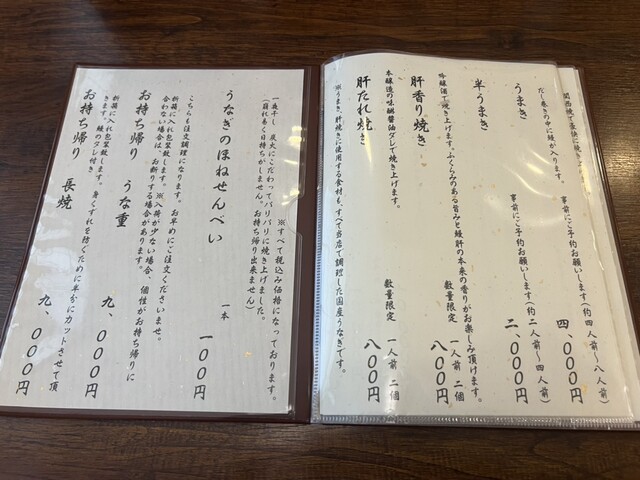 関西焼で豪快に焼き上
事前にご予約お願いします(約四人前〜八人前)
四、〇〇〇円
うまき
だし巻きの中に鰻が入ります。
事前にご予約お願いします(約二人前〜四人前)
二、〇〇〇円
半うまき
吟醸酒で焼き上げます。ふくらみのある旨みと鰻肝の本来の香りがお楽しみ頂けます。
肝香り焼き
数量限定 一人前 二個
八〇〇円
本醸造の味醂醤油タレで焼き上げます。
肝たれ焼き
数量限定 一人前 二個
八〇〇円
※うまき、肝焼きに使用する食材も、すべて当店で調理した国産うなぎです。
※すべて税込み価格になっております。
一夜干し 炭火にこだわってパリパリに焼き上げました。
(崩れ易く日持ちがしません。お持ち帰り出来ません)
うなぎのほねせんべい
一本 一〇〇円
こちらも注文調理になります。お早めにご注文くださいませ。
合わない場合は、お断りする場合があります。※入荷が少ない場合、個性がお持ち帰りに
折箱に入れ包装致します。
お持ち帰り うな重
九、〇〇〇円
折箱に入れ包装致します。身くずれを防ぐために半分にカットさせて頂
きます。鰻のタレ付き。
お持ち帰り 長焼
九、〇〇〇円